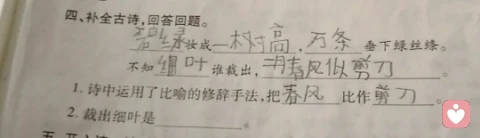 四、补全古诗,回答回题。
碧绿妆成一树高,万条垂下绿丝绦。
不知细叶谁裁出,二月春风似剪刀。
1. 诗中运用了比喻的修辞手法,把春风比作剪刀。
2. 裁出细叶是________。